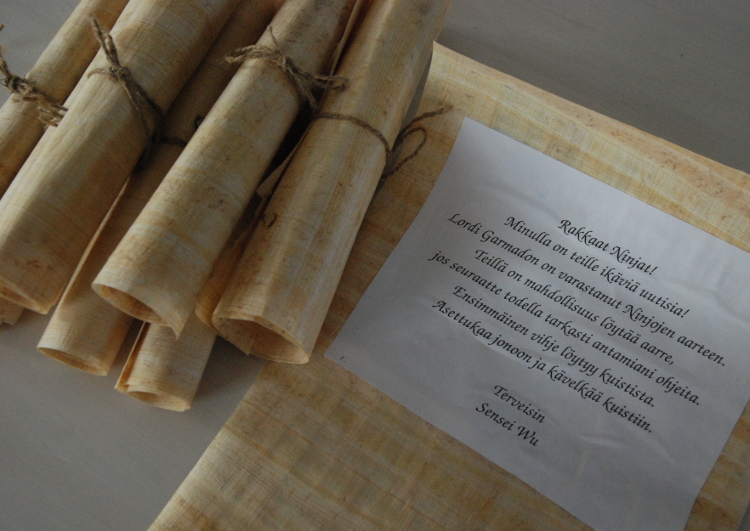 Rakkaat Ninjat!
Minulla on teille ikäviä uutisia!
Lordi Garmadon on varastanut Ninjojen aarteen.
Teillä on mahdollisuus löytää aarre,
jos seuraatte todella tarkasti antamiani ohjeita.
Ensinmäinen vihje löytyy kuistista.
Asettukaa jonoon ja kävelkää kuistiin.
Terveisin
Sensei Wu